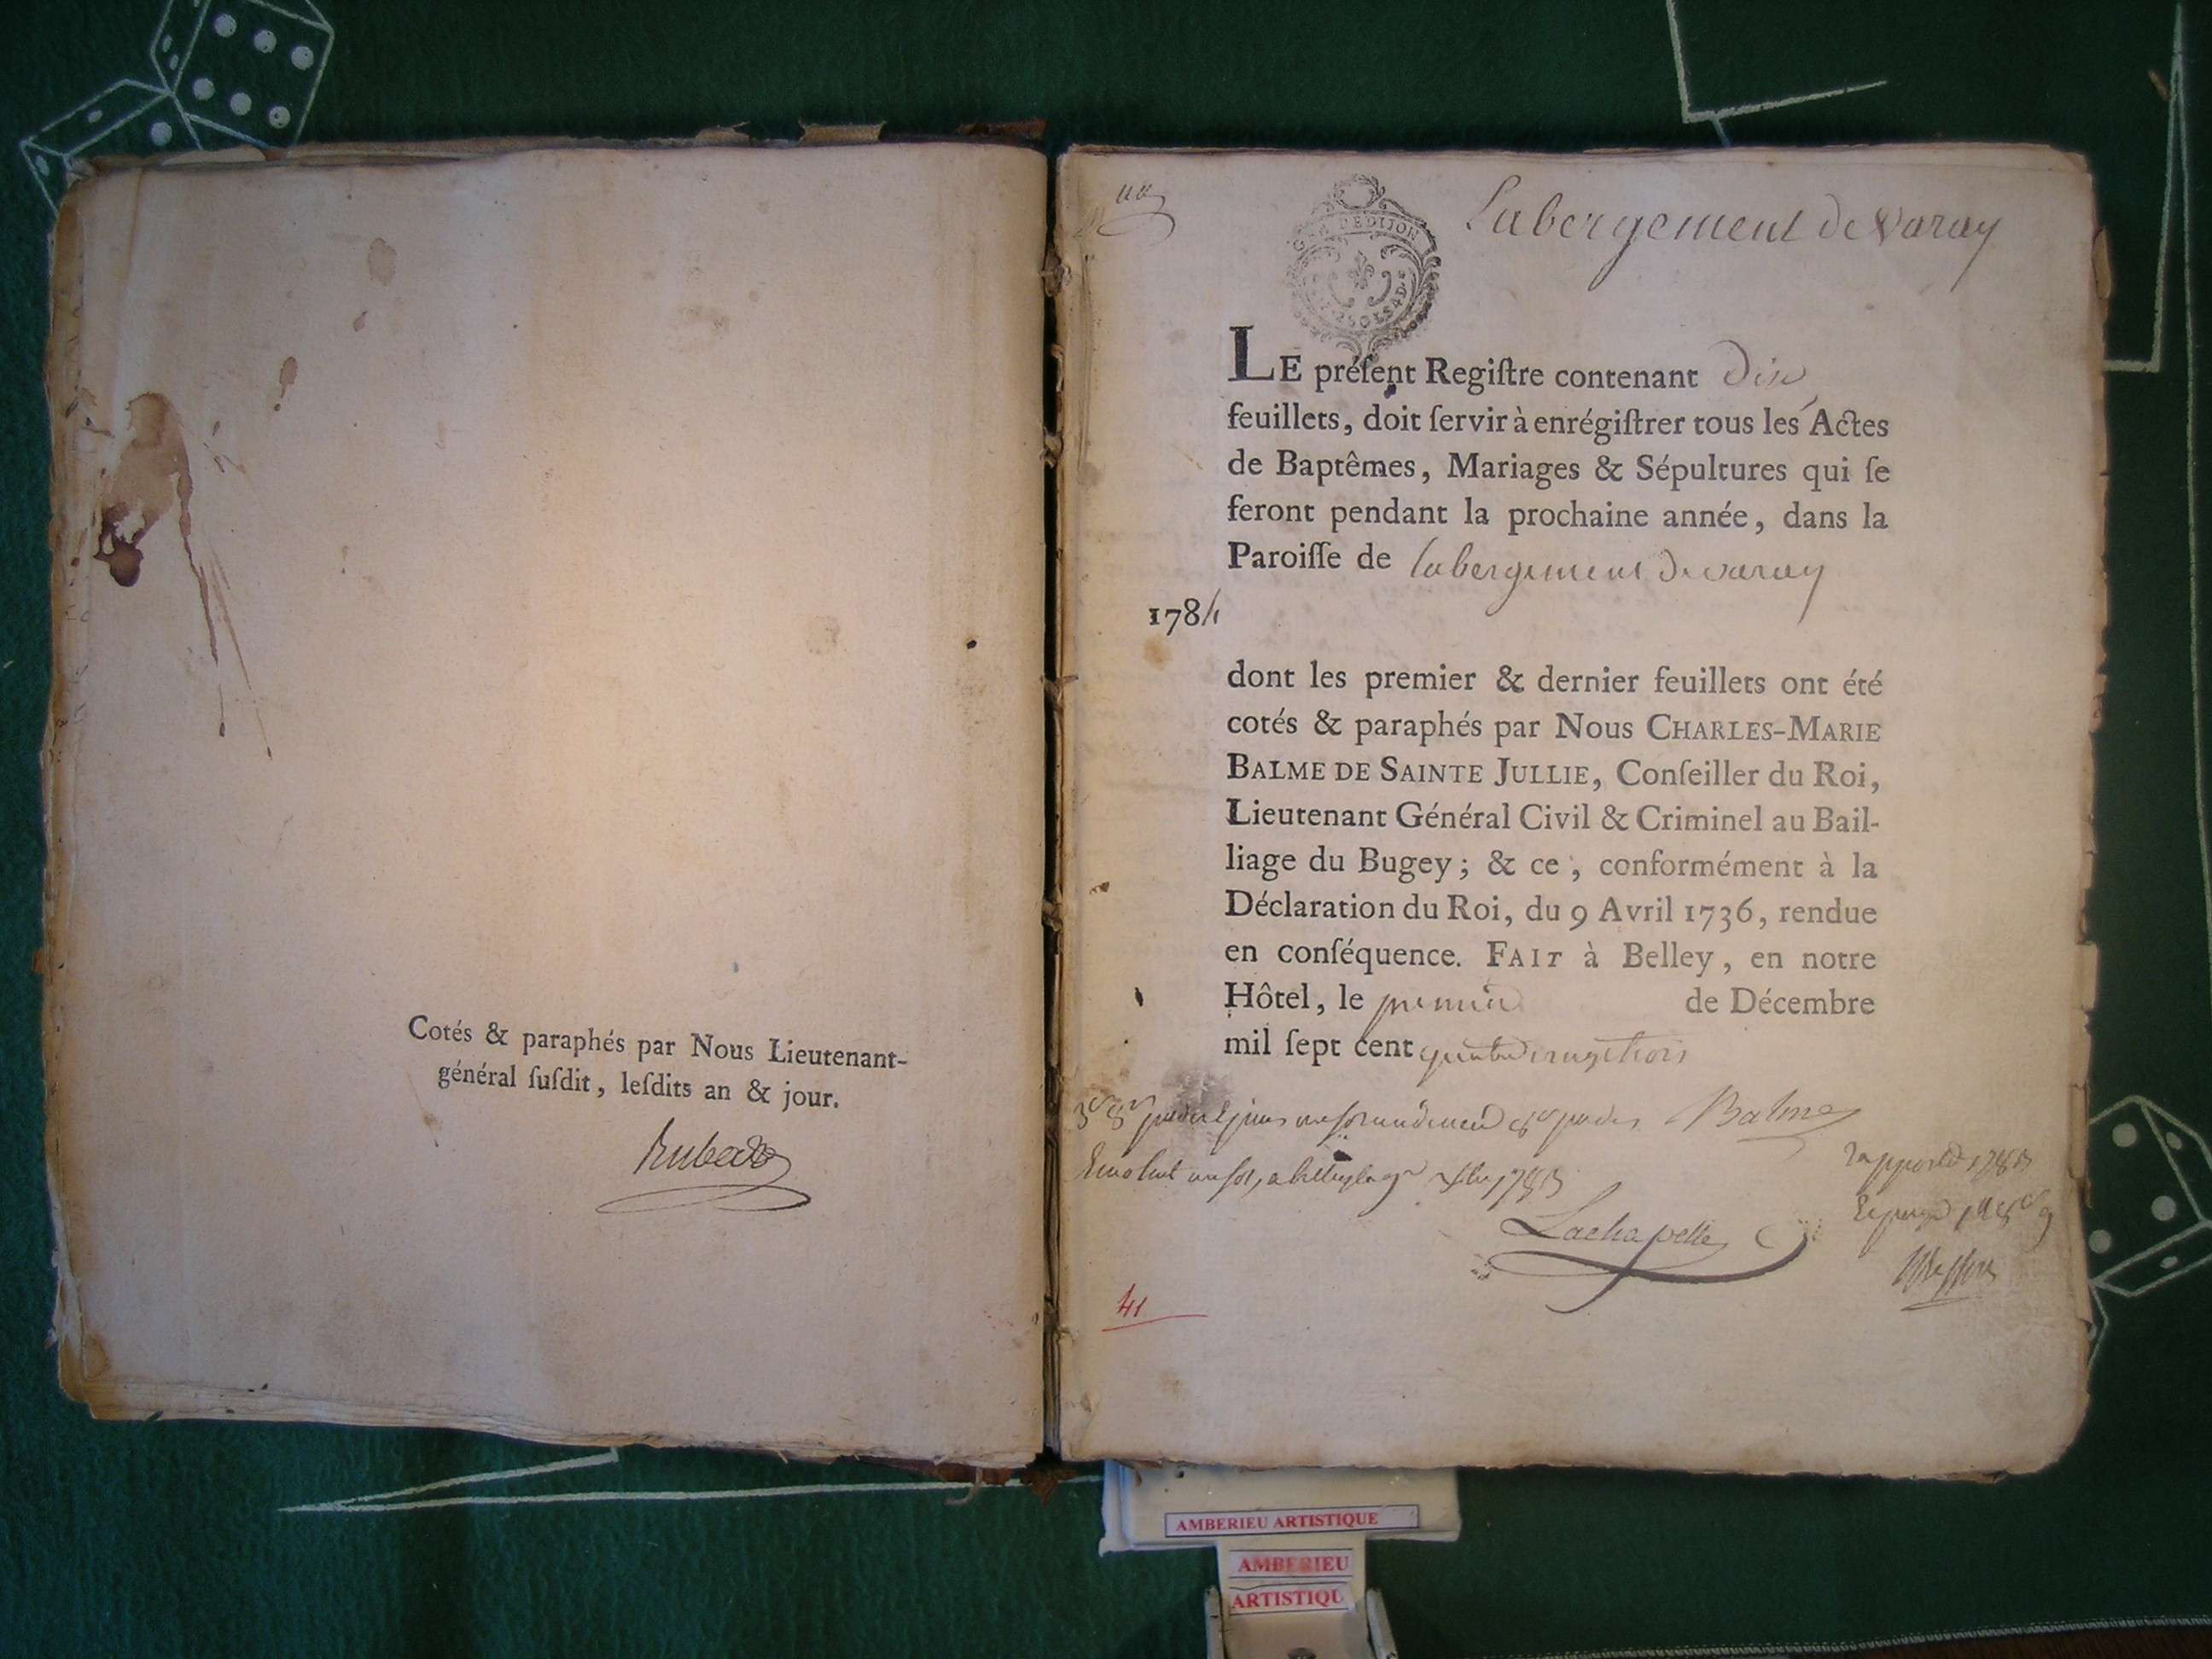 Cotés & paraphés par Nous Lieutenant-
général ſuſdit, leſdits an & jour.
Labergement de Varay
LE préſent Regiſtre contenant dix
feuillets, doit ſervir à enrégiſtrer tous les Actes
de Baptêmes, Mariages & Sépultures qui ſe
feront pendant la prochaine année, dans la
Paroiſſe de labergement de varay
1784
dont les premier & dernier feuillets ont été
cotés & paraphés par Nous CHARLES-MARIE
BALME DE SAINTE JULLIE, Conſeiller du Roi,
Lieutenant Général Civil & Criminel au Bail-
liage du Bugey ; & ce , conformément à la
Déclaration du Roi, du 9 Avril 1736, rendue
en conſéquence. FAIT à Belley, en notre
Hôtel, le premier de Décembre
mil ſept cent quatrevingt trois
Balme
Lachapelle
41
AMBERIEU ARTISTIQUE
AMBERIEU
ARTISTIQU